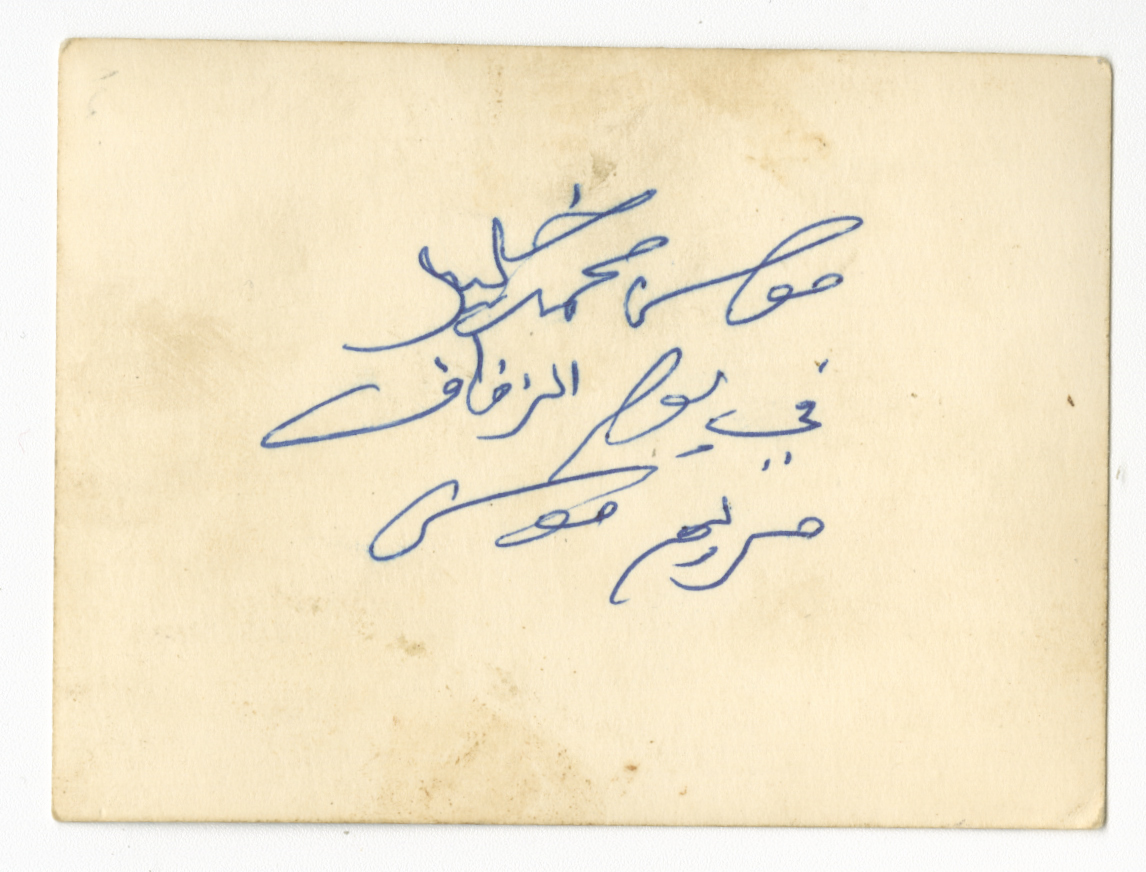 موسى محمد خليل
في يوم الزفاف
مريم موسى